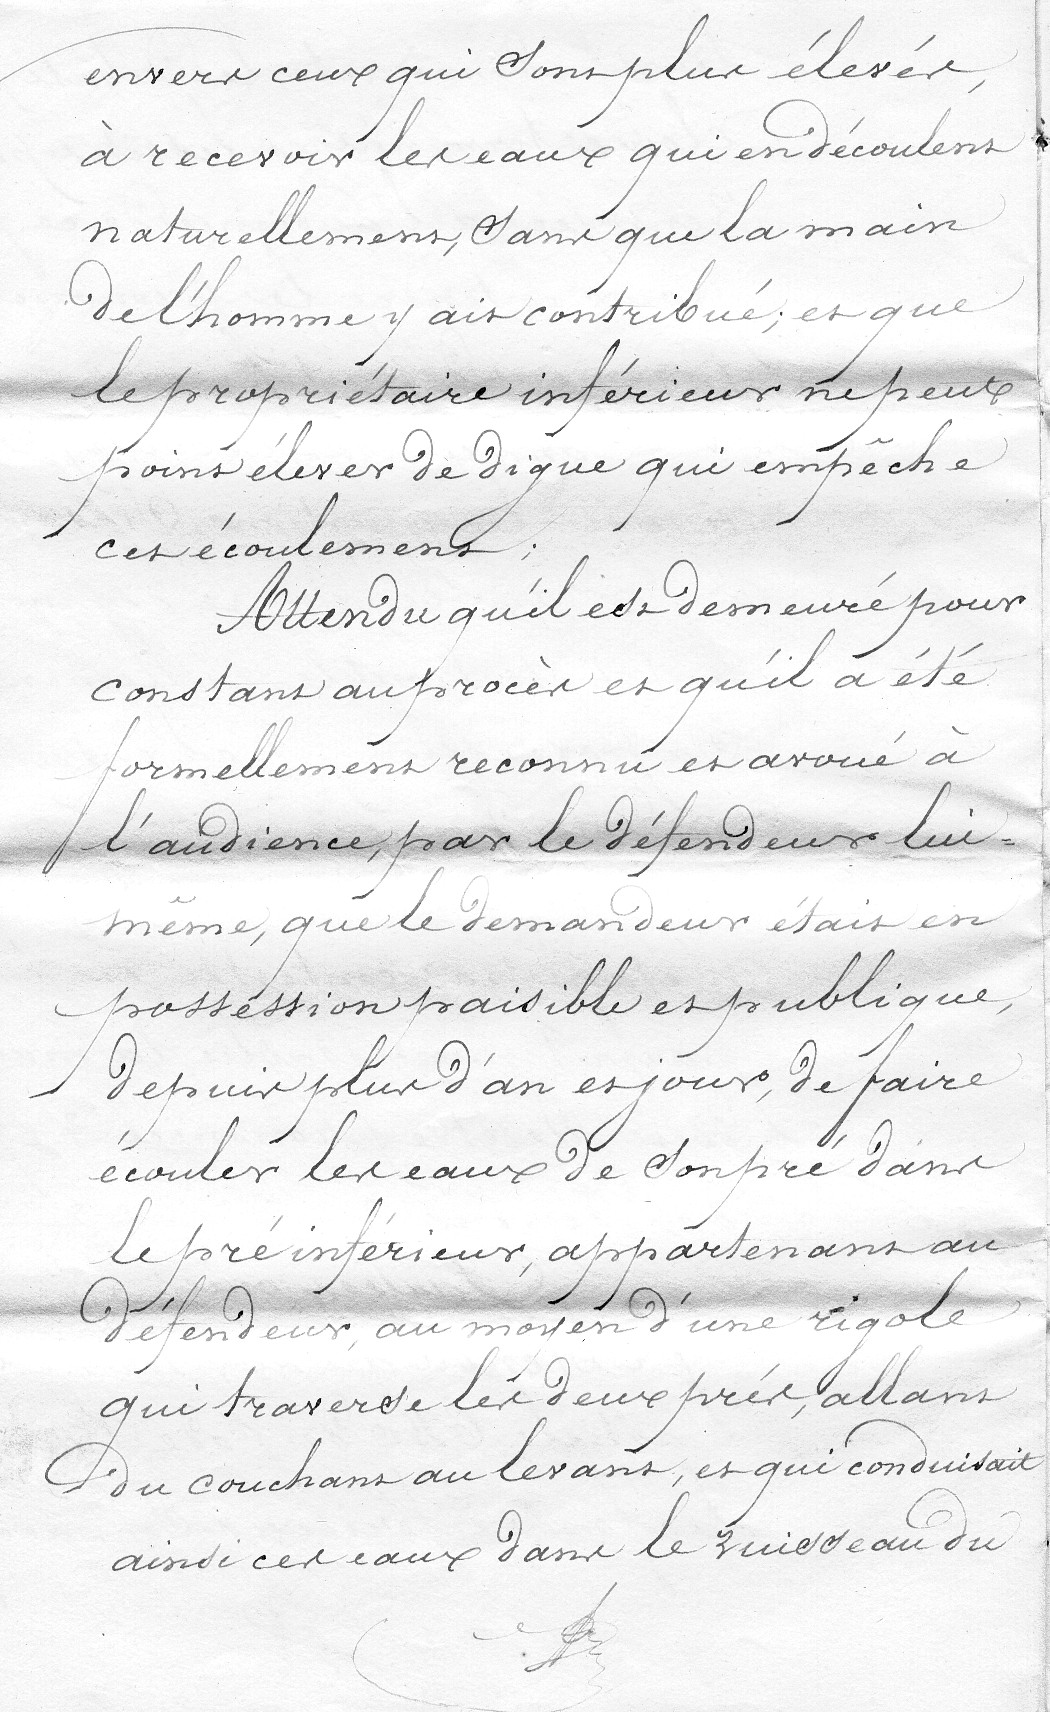 envers ceux qui sont plus élevés,
à recevoir les eaux qui en découlent
naturellement, sans que la main
de l'homme y ait contribué; et que
le propriétaire inférieur ne peux
point élever de digue qui empêche
cet écoulement;
Attendu qu'il est demeuré pour
constant au procès et qu'il a été
formellement reconnu et avoué à
l'audience, par le défendeur lui=
même, que le demandeur était en
possession paisible et publique,
depuis plus d'an et jour, de faire
écouler les eaux de son pré dans
le pré inférieur, appartenant au
défendeur, au moyen d'une rigole
qui traverse les deux prés, allant
du couchant au levant, et qui conduisait
ainsi ces eaux dans le ruisseau du